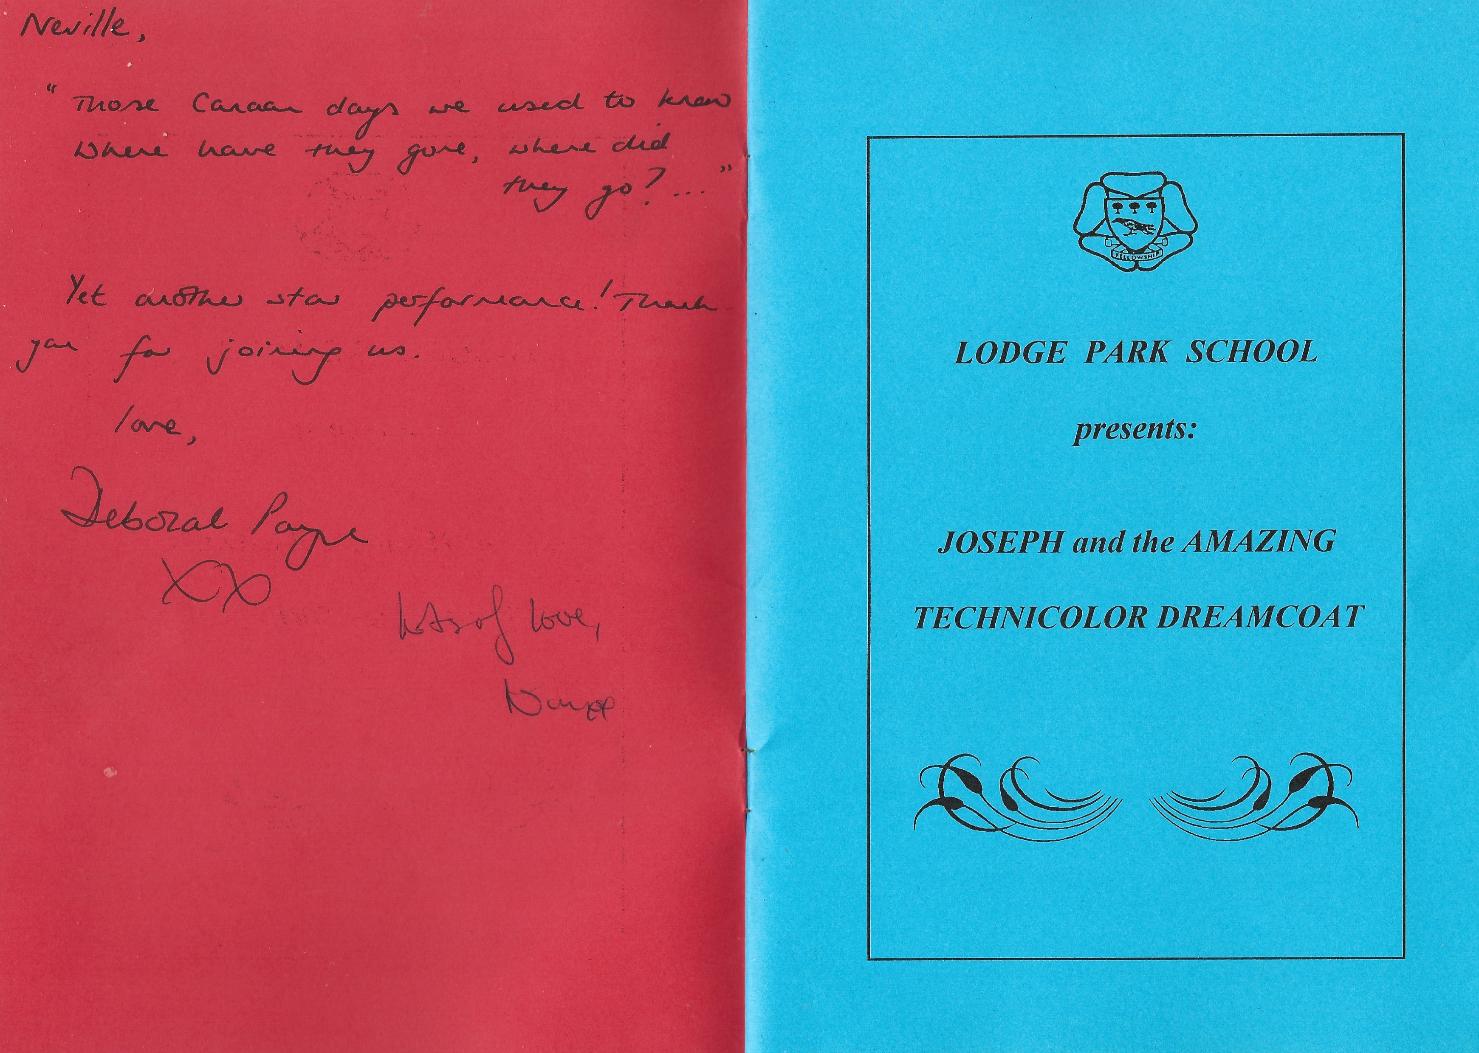 Neville,
"Those Canaan days we used to know
Where have they gone, where did
they go?..."
Yet another star performance! Thank
you for joining us.
love,
Deborah Payne
XX
Lots of love,
FELLOWSHIP
LODGE PARK SCHOOL
presents:
JOSEPH and the AMAZING
TECHNICOLOR DREAMCOAT